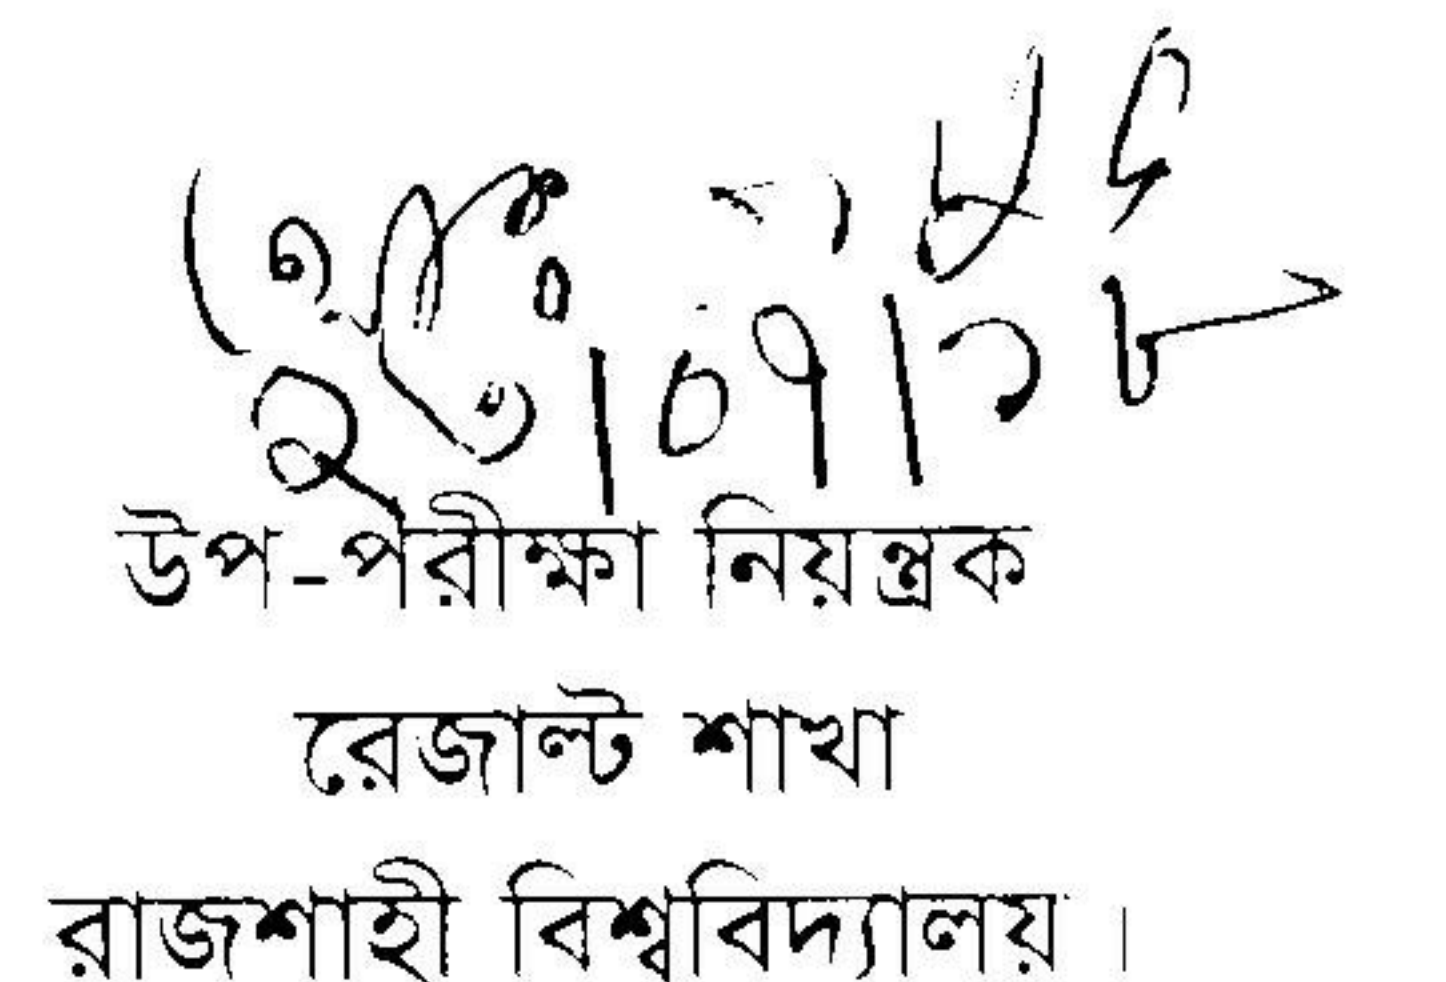 উপ-পরীক্ষা নিয়ন্ত্রক
রেজাল্ট শাখা
রাজশাহী বিশ্ববিদ্যালয় ।